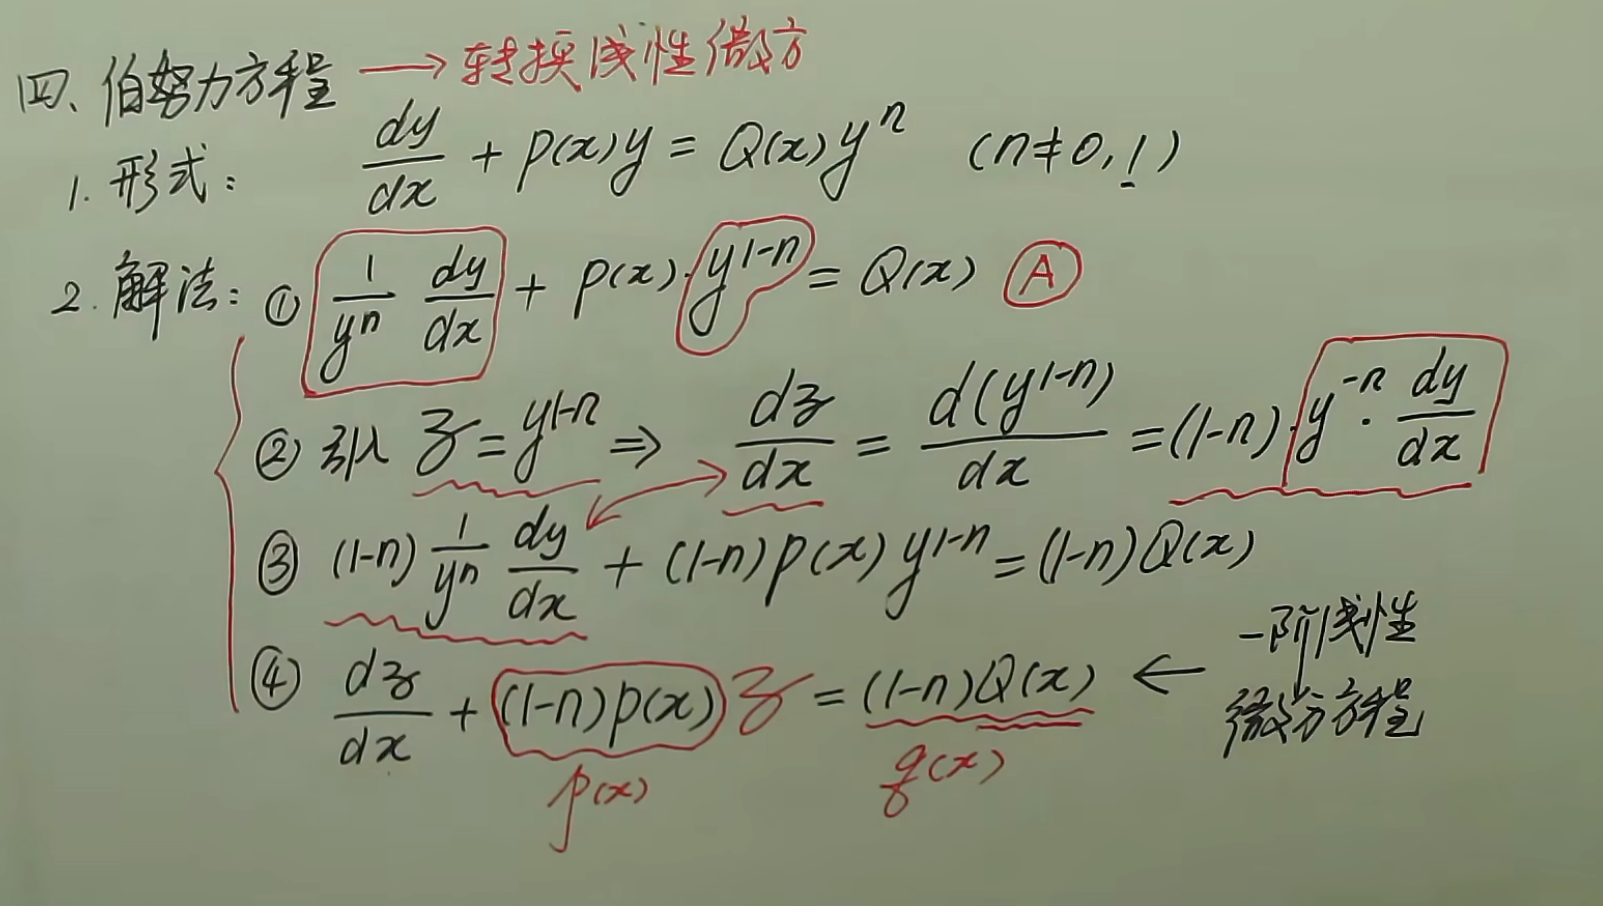 四、伯努力方程 → 转换线性微方
1. 形式: dy/dx + p(x)y = Q(x)yⁿ (n≠0,1)
2. 解法: ① 1/yⁿ dy/dx + p(x)·y¹⁻ⁿ = Q(x) Ⓐ
② 引入 z = y¹⁻ⁿ ⇒ dz/dx = d(y¹⁻ⁿ)/dx = (1-n)·y⁻ⁿ·dy/dx
③ (1-n) 1/yⁿ dy/dx + (1-n)p(x)y¹⁻ⁿ = (1-n)Q(x)
④ dz/dx + (1-n)p(x)z = (1-n)Q(x) ← 一阶线性
微分方程
p(x) q(x)